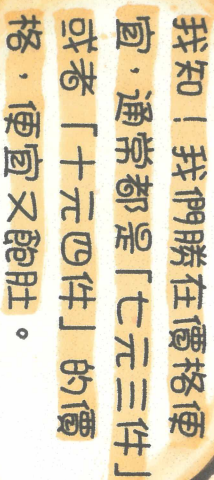 我知！我們勝在價格便
宜，通常都是「七元三件」
或者「十元四件」的價
格，便宜又飽肚。